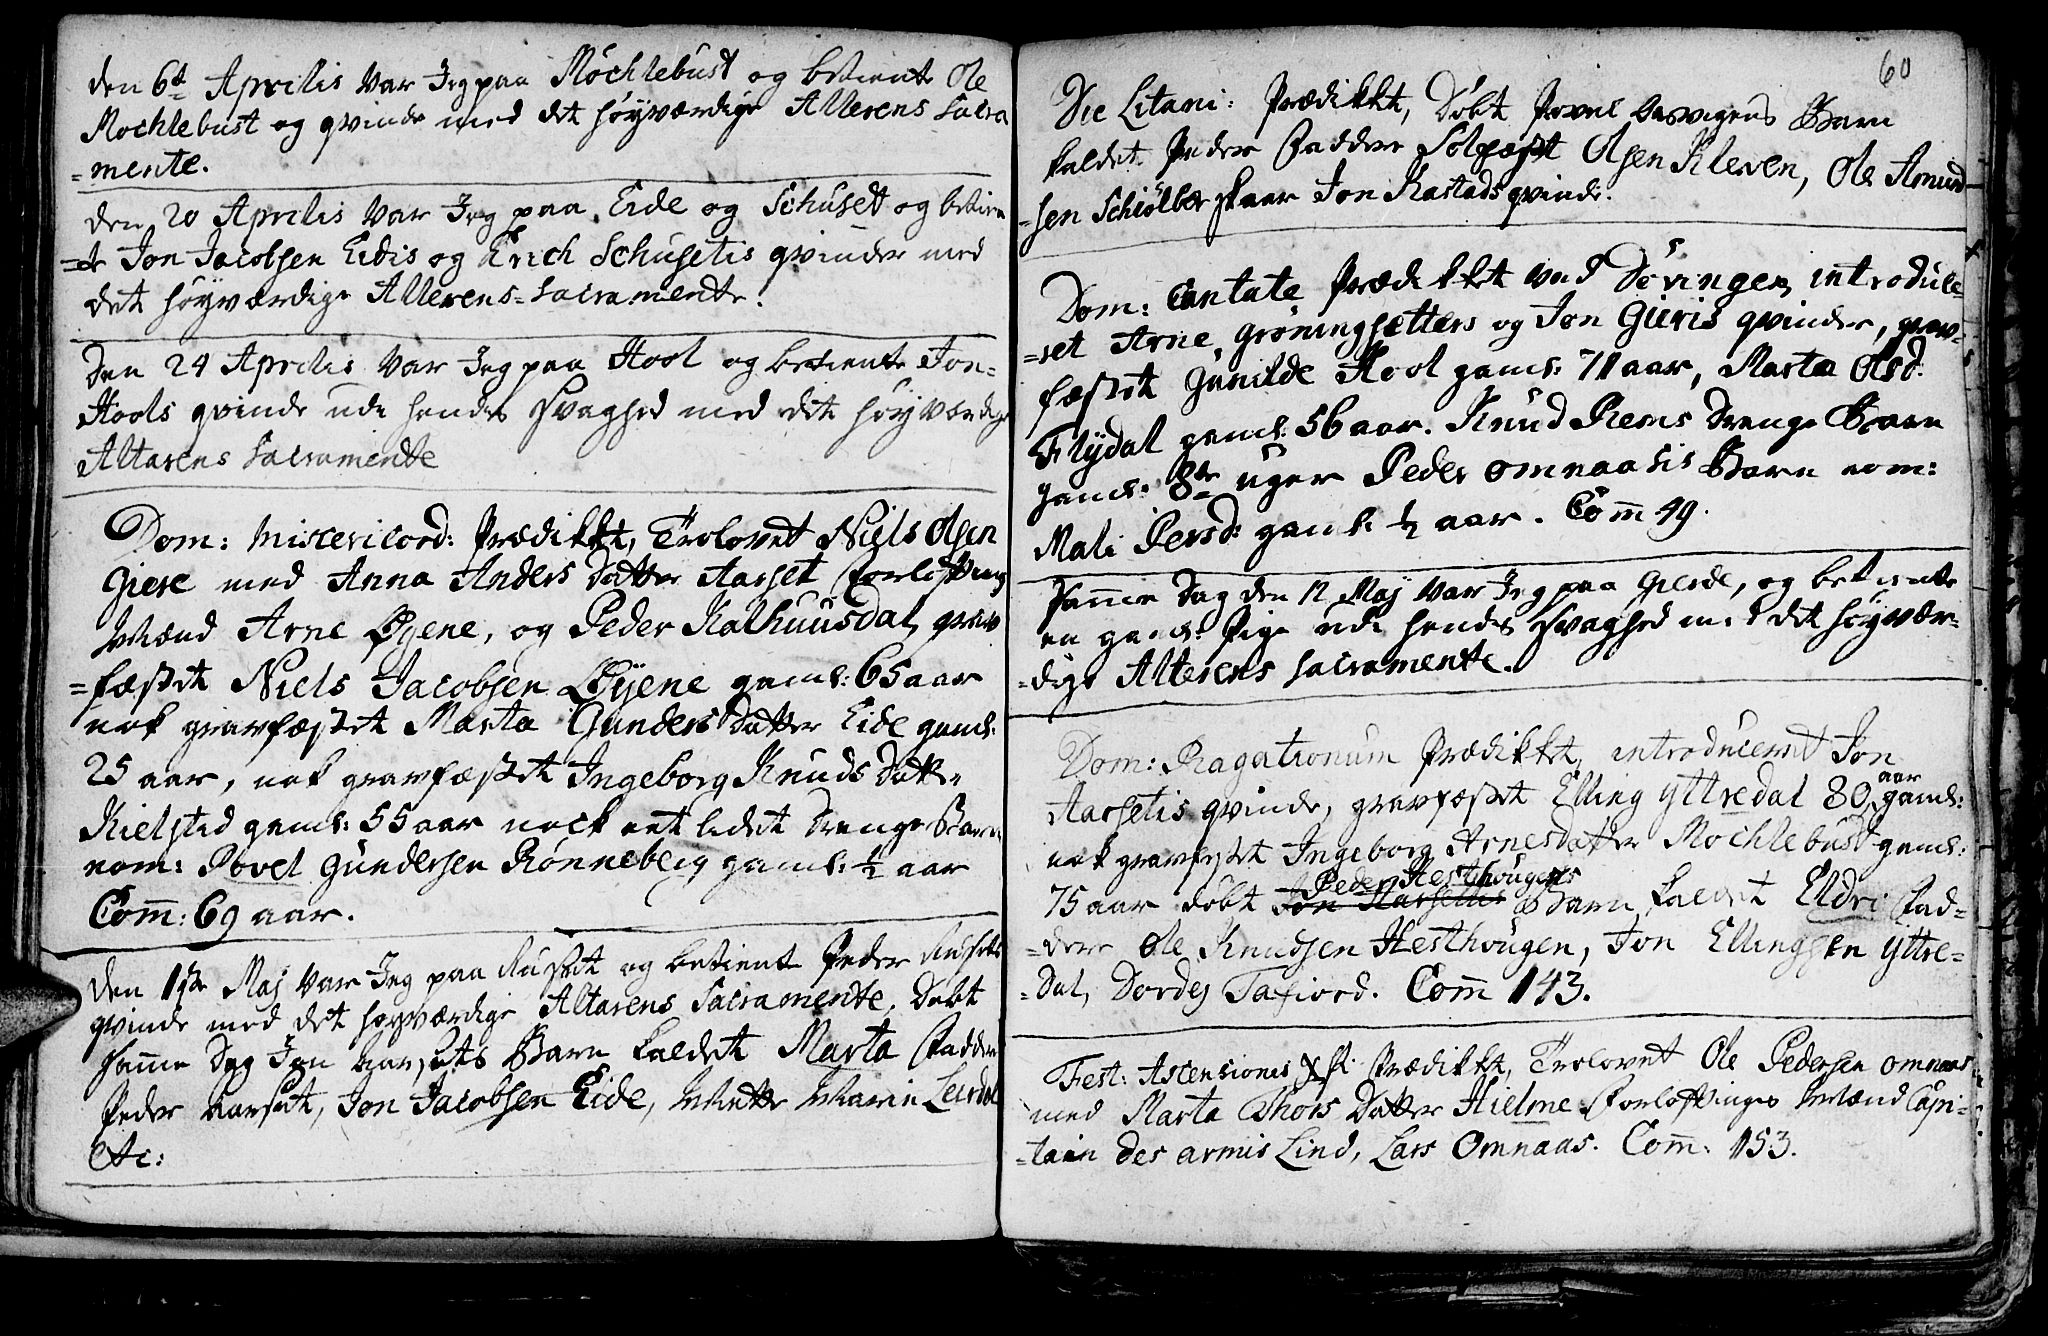 den 6te Aprilis var Jeg paa Möchlebust og betiente Ole
Mochlebust og qvinde med det höyværdige Allterens Sacra
=mente.
den 20 Aprilis var Jeg paa Eide og Schuset og betien
=te Jon Jacobsen Eidis og Erich Schusetis qvinder med
det höyværdige Allterens=Sacramente.
Den 24 Aprilis var Jeg paa Hool og betiente Jon=
Hools qvinde udi hendes svaghed med det höyværdige
Altarens Sacramente
Dom: Misericord: Prædikket, Trolovet Niels Olsen
Giere med Anna Anders Datter Aarset Forloftnings
Mænd Arne Öyene, og Peder Kalhuusdal, grav
=fæstet Niels Jacobsen Öyene gaml: 65 aar
nok gravfæstet Marta Gunders Datter Eide gaml:
25 aar, nok gravfæstet Ingeborg Knuds Datt:
Kielsted gaml: 55 aar nock eet lidet Drenge Barn
nom: Povel Gundersen Rönneberg gaml: ½ aar
Com̄: 69 aar.
den 1ste Maj var Jeg paa Ruset og betient Peder Rusets
qvinde med det höyværdige Altarens Sacramente, Döbt
sam̄e Dag Jon Aarsets Barn kaldet Marta Fadder
Peder Aarset, Jon Jacobsen Eide, Mette Marie Leirdal
etc:
60
Die Litani: Prædikket, Döbt Povel Aasvegens Barn
kaldet Peder Faddere Solgast Olsen Kleven, Ole Amund
=sen Schiölberskaar Jon Rastads qvinde.
Dom: Cantate Prædikket ved Söringen, introduce=
=ret Arne Gröningsætters og Jon Gieris qvinder, grav=
fæstet Gunilde Hool gaml: 71 aar, Marta Olsd:
Flydal gaml: 56 aar. Knud Rems Drenge Barn
gaml: 8te uger Peder Omnaasis Barn nom:
Mali Persd: gaml: ½ aar. Com̄ 49.
Sam̄e Dag den 12 Maj var Jeg paa Gierde, og betiente
en gaml: Pige udi hendes svaghed med det höyvær=
=dige Alterens Sacramente.
Dom: Ragationum Prædikket, introduceret Jon
Aarsetis qvinde, gravfæstet Elling Yttredal 80 aar gaml:
nok gravfæstet Ingeborg Arnesdatter Mochlebust gaml:
75 aar döbt Jon Aarsettis Peder Hesthougens Barn kaldet Eldri Fad=
=dere Ole Knudsen Hesthougen, Jon Ellingsen Yttre=
=Dal, Dordej Tafiord. Com̄ 143.
Fest: Ascensionis Xsti Prædikket, Trolovet Ole Pedersen Omnaas
med Marta Thors Datter Hielme Forloftnings Mænd Capi=
=tain des armis Lind, Lars Omnaas. Com̄: 153.